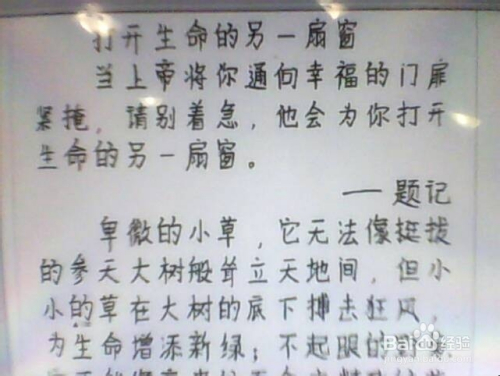 打开生命的另一扇窗
当上帝将你通向幸福的门扉
紧掩，请别着急，他会为你打开
生命的另一扇窗。
——题记
卑微的小草，它无法像挺拔
的参天大树般耸立天地间，但小
小的草在大树的底下搏击狂风，
为生命增添新绿；不起眼的
Baidu经验